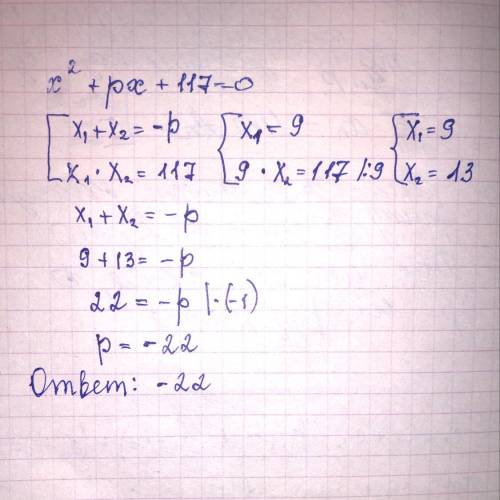 x² + px + 117 = 0
x₁ + x₂ = -p   x₁ = 9   x₁ = 9
x₁ · x₂ = 117   9 · x₂ = 117 |:9   x₂ = 13
x₁ + x₂ = -p
9 + 13 = -p
22 = -p |·(-1)
p = -22
Ответ: -22